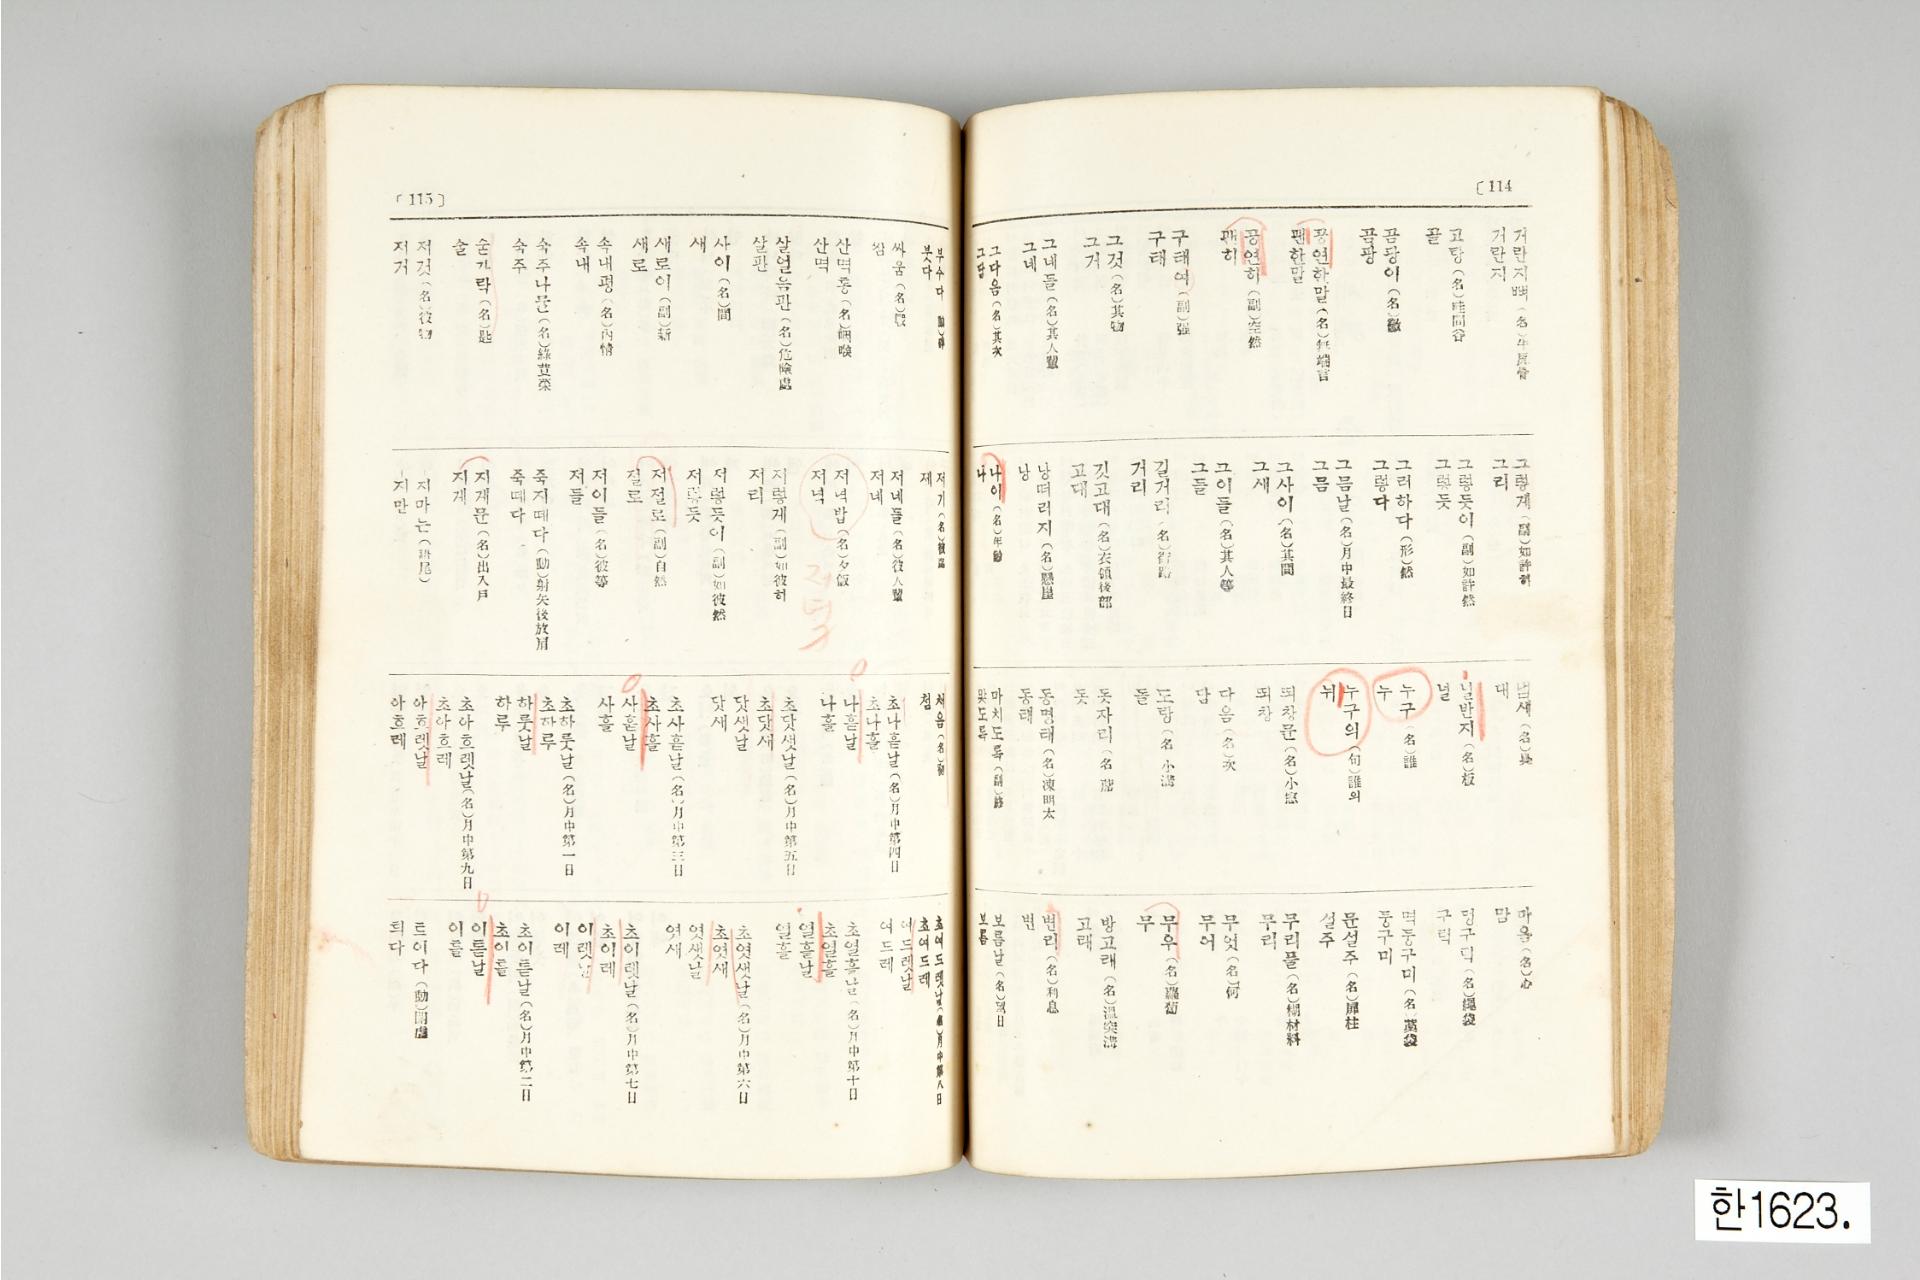 〔114
거란지뼈(名)牛尻骨
거란지
고랑(名)畦間谷
골
곰팡이(名)黴
곰팡
공연한말(名)無端言
괜한말
공연히(副)空然
괜히
구태여(副)强
구태
그것(名)其物
그거
그네들(名)其人輩
그네
그다음(名)其次
그담
그렇게(副)如許
그리
그렇듯이(副)如許然
그렇듯
그러하다(形)然
그렇다
그믐날(名)月中最終日
그믐
그사이(名)其間
그새
그이들(名)其人等
그들
길거리(名)街路
거리
깃고대(名)衣領後部
고대
낭떠러지(名)懸崖
낭
나이(名)年齡
나
냄새(名)臭
내
널반지(名)板
널
누구(名)誰
누
누구의(句)誰의
뉘
띄창문(名)小窓
띄창
다음(名)次
담
도랑(名)小溝
돌
돗자리(名)席
돗
동명태(名)凍明太
동태
마치도록(副)終
맟도록
마음(名)心
맘
멍구럭(名)繩袋
구럭
멱둥구미(名)藁袋
둥구미
문설주(名)扉柱
설주
무리풀(名)糊材料
무리
무엇(名)何
무어
무우(名)蘿葍
무
방고래(名)溫突溝
고래
변리(名)利息
변
보름날(名)望日
보름
〔115〕
부수다(動)碎
붓다
싸움(名)鬪
쌈
산멱통(名)咽喉
산멱
살얼음판(名)危險處
살판
사이(名)間
새
새로이(副)新
새로
속내평(名)內情
속내
숙주나물(名)綠荳菜
숙주
숟가락(名)匙
술
저것(名)彼物
저거
저기(名)彼處
제
저네들(名)彼人輩
저네
저녁밥(名)夕飯
저녁
저렇게(副)如彼許
저리
저렇듯이(副)如彼然
저렇듯
저절로(副)自然
절로
저이들(名)彼等
저들
죽지떼다(動)射矢後放肩
죽떼다
지게문(名)出入戶
지게
-지마는(語尾)
-지만
처음(名)初
첨
초나흗날(名)月中第四日
초나흘
나흗날
나흘
초닷샛날(名)月中第五日
초닷새
닷샛날
닷새
초사흗날(名)月中第三日
초사흘
사흗날
사흘
초하룻날(名)月中第一日
초하루
하룻날
하루
초아흐렛날(名)月中第九日
초아흐레
아흐렛날
아흐레
초여드렛날(名)月中第八日
초여드레
여드렛날
여드레
초열흘날(名)月中第十日
초열흘
열흘날
열흘
초엿샛날(名)月中第六日
초엿새
엿샛날
엿새
초이렛날(名)月中第七日
초이레
이렛날
이레
초이튿날(名)月中第二日
초이틀
이튿날
이틀
트이다(動)開處
틔다
한1623.